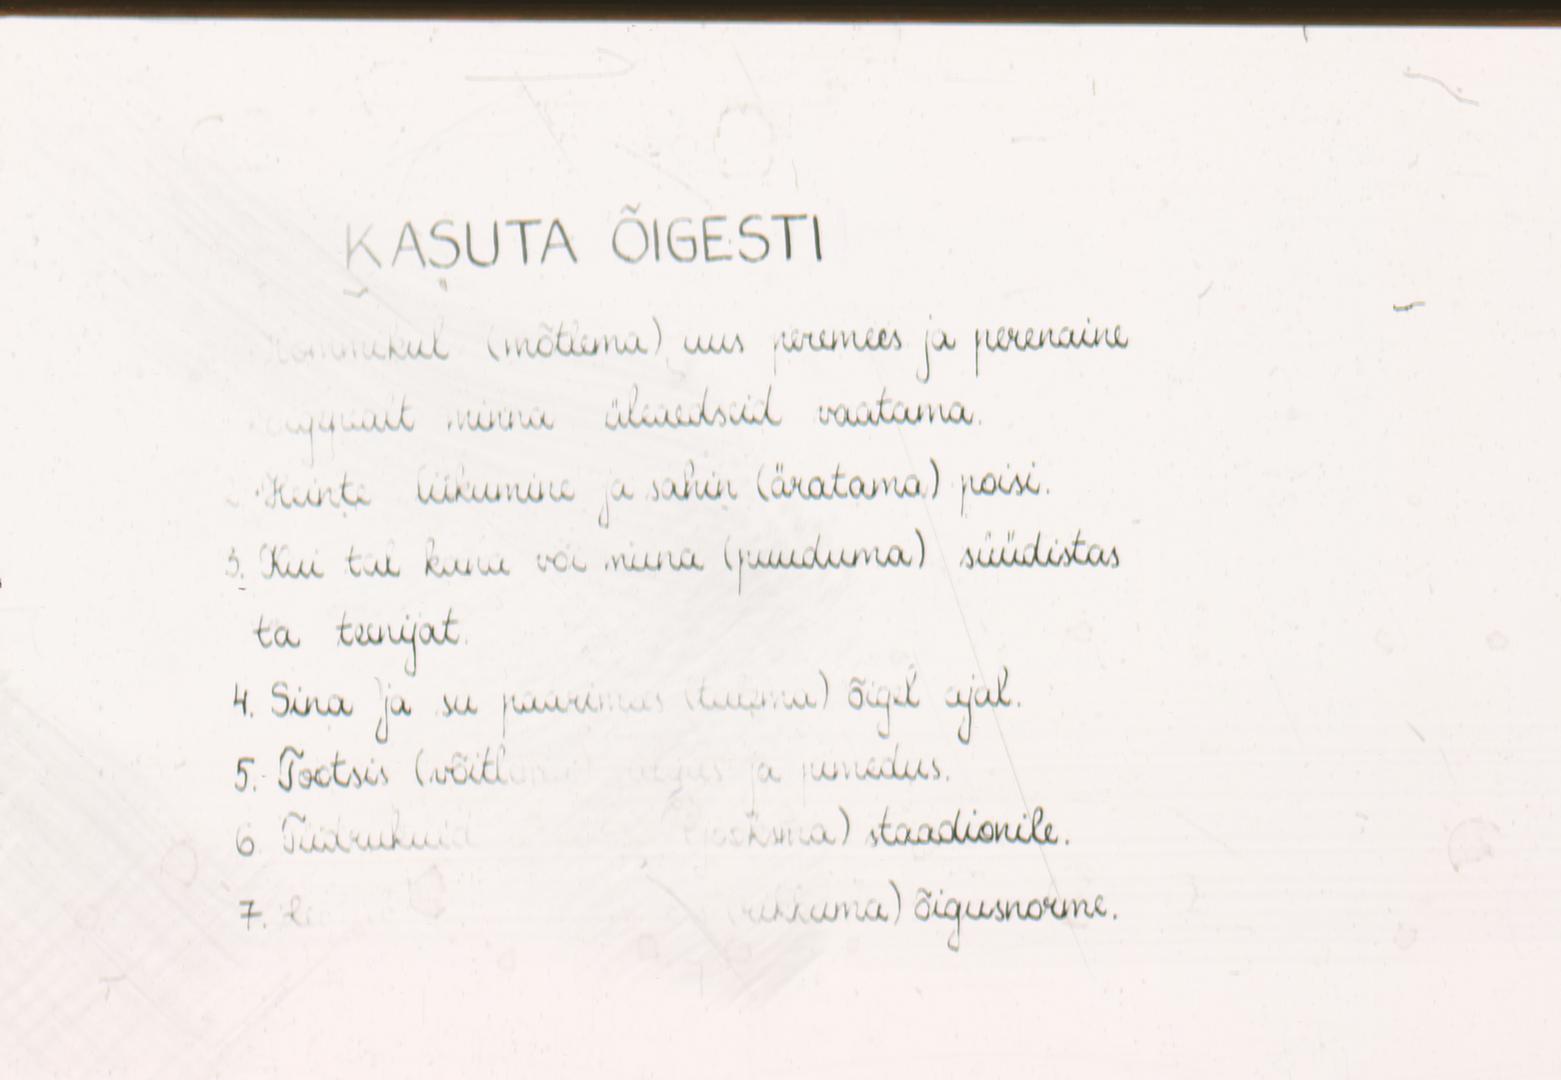 KASUTA ÕIGESTI
(mõtlema) uus peremees ja perenaine
minna üleaedseid vaatama.
Heinte liikumine ja sahin (äratama) poisi.
3. Kui tal kana või muna (puuduma) süüdistas
ta teenijat.
4. Sina ja su paarimees (tulema) õigel ajal.
5. Tootsis ja pimedus.
6. Tüdrukuid (jooksma) staadionile.
7. (rikkuma) õigusnorme.